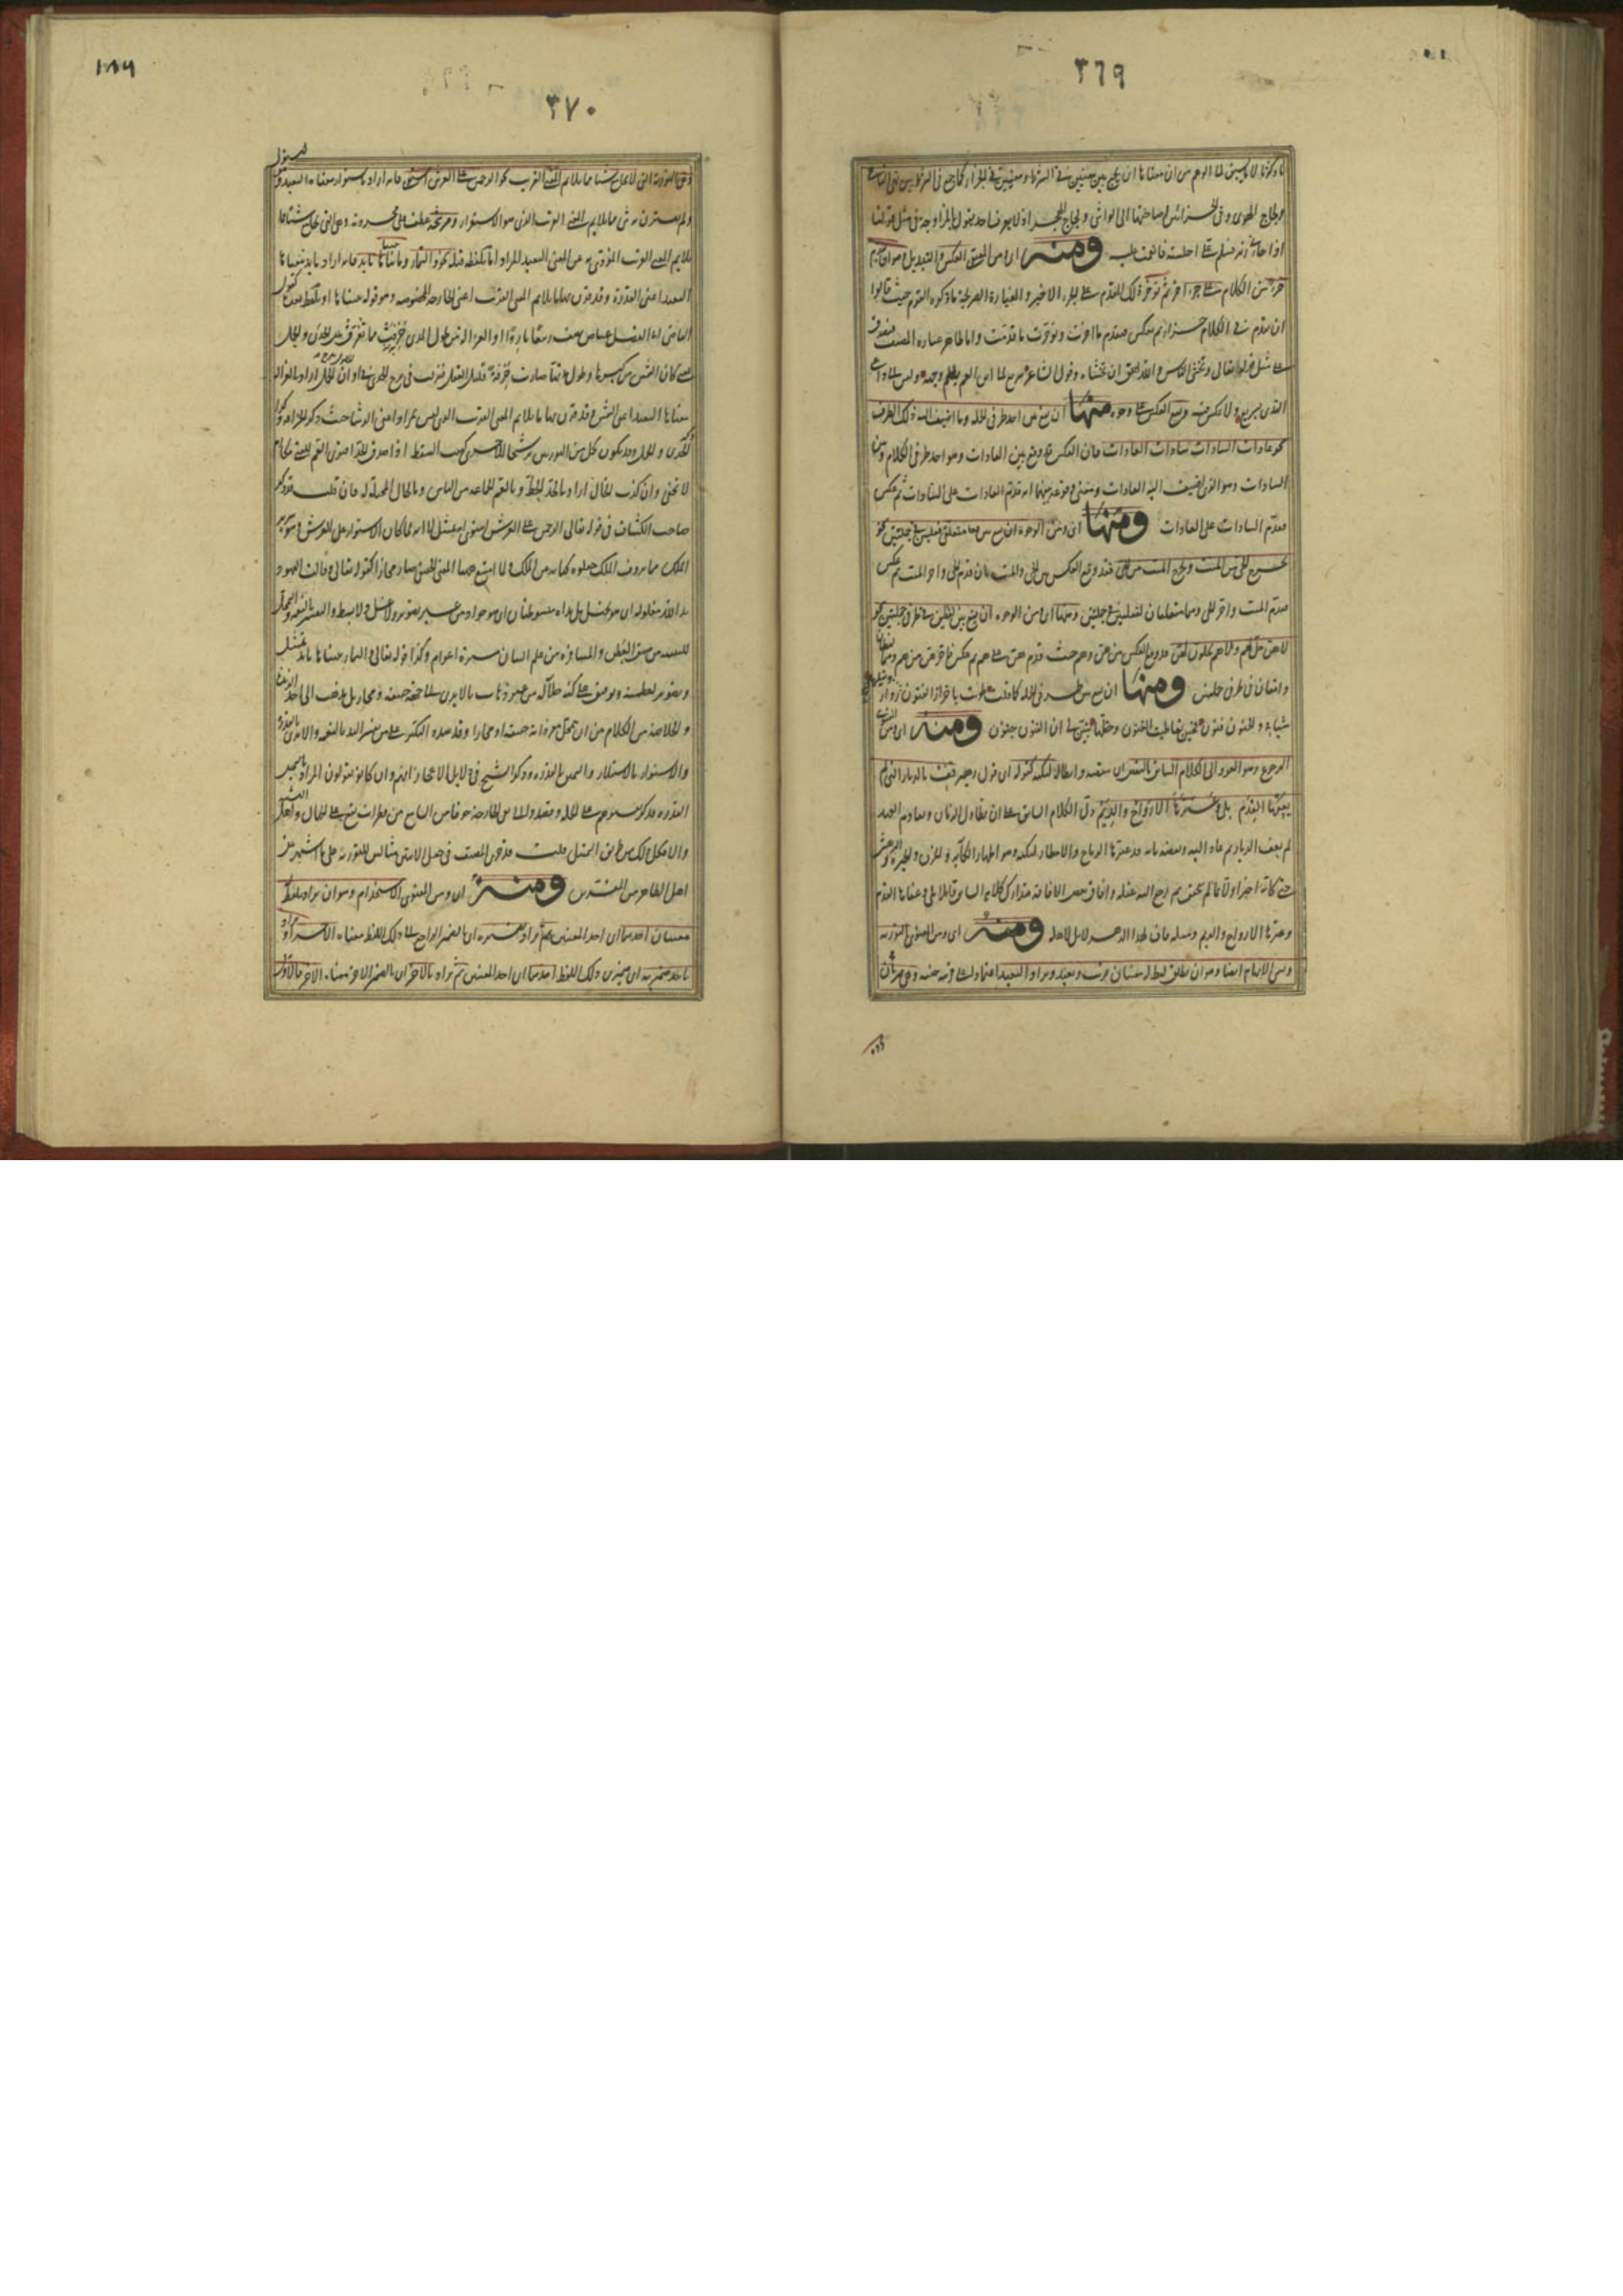 ٣٦٩
ما ذكرنا لا ما يسبق الى الوهم من ان معناها ان يجمع بين معنيين في الشرط ومعنيين في الجزاء كما جمع في الشرط بين نهى الناهي
ولجاج الهوى وفى الجزاء بين اصاختها الى الواشي ولجاج الهجر اذ لا يعرف احد يقول بالمزاوجة في مثل قولنا
اذا جاءني زيد فسلم على اجلسته فانعمت عليه ومنه اى ومن المعنوى العكس والتبديل وهو ان يقدم
جزء من الكلام على جزء اخر ثم يؤخر ذلك المقدم على الجزء الاخير والعبارة الصريحة ما ذكره القوم حيث قالوا
ان تقدم في الكلام جزءا ثم تعكس فتقدم ما اخرت وتؤخر ما قدمت واما ظاهر عبارة المصنف فيصدق
على مثل قوله تعالى وتخشى الناس والله احق ان تخشاه وقول الشاعر سريع الى ابن العم يلطم وجهه وليس الى داعى
الندى بسريع ولا عكس فيه ويقع العكس على وجوه منها ان يقع بين احد طرفي جملة وما اضيف اليه ذلك الطرف
نحو عادات السادات سادات العادات فان العكس قد وقع بين العادات وهو احد طرفى الكلام وبين
السادات وهو الذى اضيف اليه العادات ومعنى وقوعه بينهما انه قدم العادات على السادات ثم عكس
فقدم السادات على العادات ومنها اى ومن الوجوه ان يقع بين متعلقي فعلين في جملتين نحو
يخرج الحى من الميت ويخرج الميت من الحى فقد وقع العكس بين الحى والميت بان قدم الحى واخر الميت ثم عكس
فقدم الميت واخر الحى وهما متعلقان لفعلين في جملتين ومنها اى من الوجوه ان يقع بين لفظين في طرفى جملتين نحو
لا هن حل لهم ولا هم يحلون لهن وقد وقع العكس بين هن وهم حيث قدم هن على هم ثم عكس فاخر هن من هم وهما لفظان
واقعان في طرفى جملتين ومنها ان يقع بين طرفى الجملة كما قلت طويت باحراز الفنون ونيلها رداء
شبابى والجنون فنون فحين تعاطيت الفنون وحظها تبين لى ان الفنون جنون ومنه اى ومن المعنوى
الرجوع وهو العود الى الكلام السابق بالنقض اى بنقضه وابطاله لنكتة كقوله اى قول زهير قف بالديار التي لم
يعفها القدم بلى وغيرها الارواح والديم دل الكلام السابق على ان تطاول الزمان وتقادم العهد
لم يعف الديار ثم عاد اليه ونقضه بانه قد غيرها الرياح والامطار لنكتة وهو اظهار الكآبة والحزن والحيرة والدهش
حتى كانه اخبر اولا بما لم يتحقق ثم رجع اليه عقله وافاق بعض الافاقة فتدارك كلامه السابق قائلا بلى عفاها القدم
وغيرها الارواح والديم ومثله فاف لهذا الدهر لا بل لاهله ومنه اى ومن المعنوى التورية
وتسمى الايهام ايضا وهو ان يطلق لفظ له معنيان قريب وبعيد ويراد البعيد اعتمادا على قرينة خفية وهى ضربان
١٨٩
٣٧٠
وهى التورية التى لا تجامع شيئا مما يلائم المعنى القريب نحو الرحمن على العرش استوى فانه اراد باستوى معناه البعيد وهو استولى
ولم يقترن به شى مما يلايم المعنى القريب الذى هو الاستقرار ومرشحة عطف على مجردة وهى التى تجامع شيئا مما
يلايم المعنى القريب المؤدى به عن المعنى البعيد المراد اما بلفظ قبله نحو والسماء بنيناها بايد فانه اراد بايد معناها
البعيد اعنى القدرة وقد قرن بها ما يلائم المعنى القريب اعنى الجارحة المخصوصة وهو قوله بنيناها او بلفظ بعده كقول
القاضى ابى الفضل عياض يصف ربيعا باردا او الغزالة من طول المدى خرفت فما تفرق بين الجدى والحمل
يعنى كان الشمس من كبرها وطول مدتها صارت خرفة قليلة العقل فنزلت في برج الجدى في اوان الحلول ببرج الحمل اراد بالغزالة
معناها البعيد اعنى الشمس وقد قرن بها ما يلائم المعنى القريب الذى ليس بمراد اعنى الرشا حيث ذكر الخرافة وكذا
الجدى والحمل وقد يكون كل من التوريتين ترشيحا للاخرى كبيت السقط اذا صدق الجد افترى العم للفتى مكارم
لا تخفى وان كذب الخال اراد بالجد الحظ وبالعم الجماعة من الناس وبالخال المخيلة فان قلت قد ذكر
صاحب الكشاف في قوله تعالى الرحمن على العرش استوى انه تمثيل لانه لما كان الاستواء على العرش وهو سرير
الملك مما يردف الملك جعلوه كناية عن الملك ولما امتنع ههنا المعنى الحقيقى صار مجازا كقوله تعالى وقالت اليهود
يد الله مغلولة اى هو بخيل بل يداه مبسوطتان اى هو جواد من غير تصور يد ولا غل ولا بسط والتفسير بالنعمة والتمحل
للتثنية من ضيق العطن والمسافرة عن علم البيان مسيرة اعوام وكذا قوله تعالى والسماء بنيناها بايد تمثيل
وتصوير لعظمته وتوقيف على كنه جلاله من غير ذهاب بالايدى الى جهة حقيقة او مجاز بل يذهب الى اخذ الزبدة
والخلاصة من الكلام من ان تحمل مفرداته حقيقة او مجازا وقد شدد النكير على من يفسر اليد بالنعمة والايدى بالقدرة
والاستواء بالاستيلاء واليمين بالقدرة وذكر الشيخ في دلايل الاعجاز انهم وان كانوا يقولون المراد باليمين
القدرة فذلك تفسير منهم على الجملة وقصد الى نفى الجارحة خوفا من السامع من خطرات تقع على الجهال واهل التشبيه
والا فكل ذلك من طريق التمثيل قلت قد جرى المصنف في جعل الايتين مثالين للتورية على ما اشتهر بين
اهل الظاهر من المفسرين ومنه اى ومن المعنوى الاستخدام وهو ان يراد بلفظ له
معنيان احدهما اى احد المعنيين ثم يراد بضميره اى بالضمير الراجع الى ذلك اللفظ معناه الاخر او يراد
باحد ضميريه اى ضميرى ذلك اللفظ احدهما اى احد المعنيين ثم يراد بالاخر اى بالضمير الاخر معناه الاخر فالاول